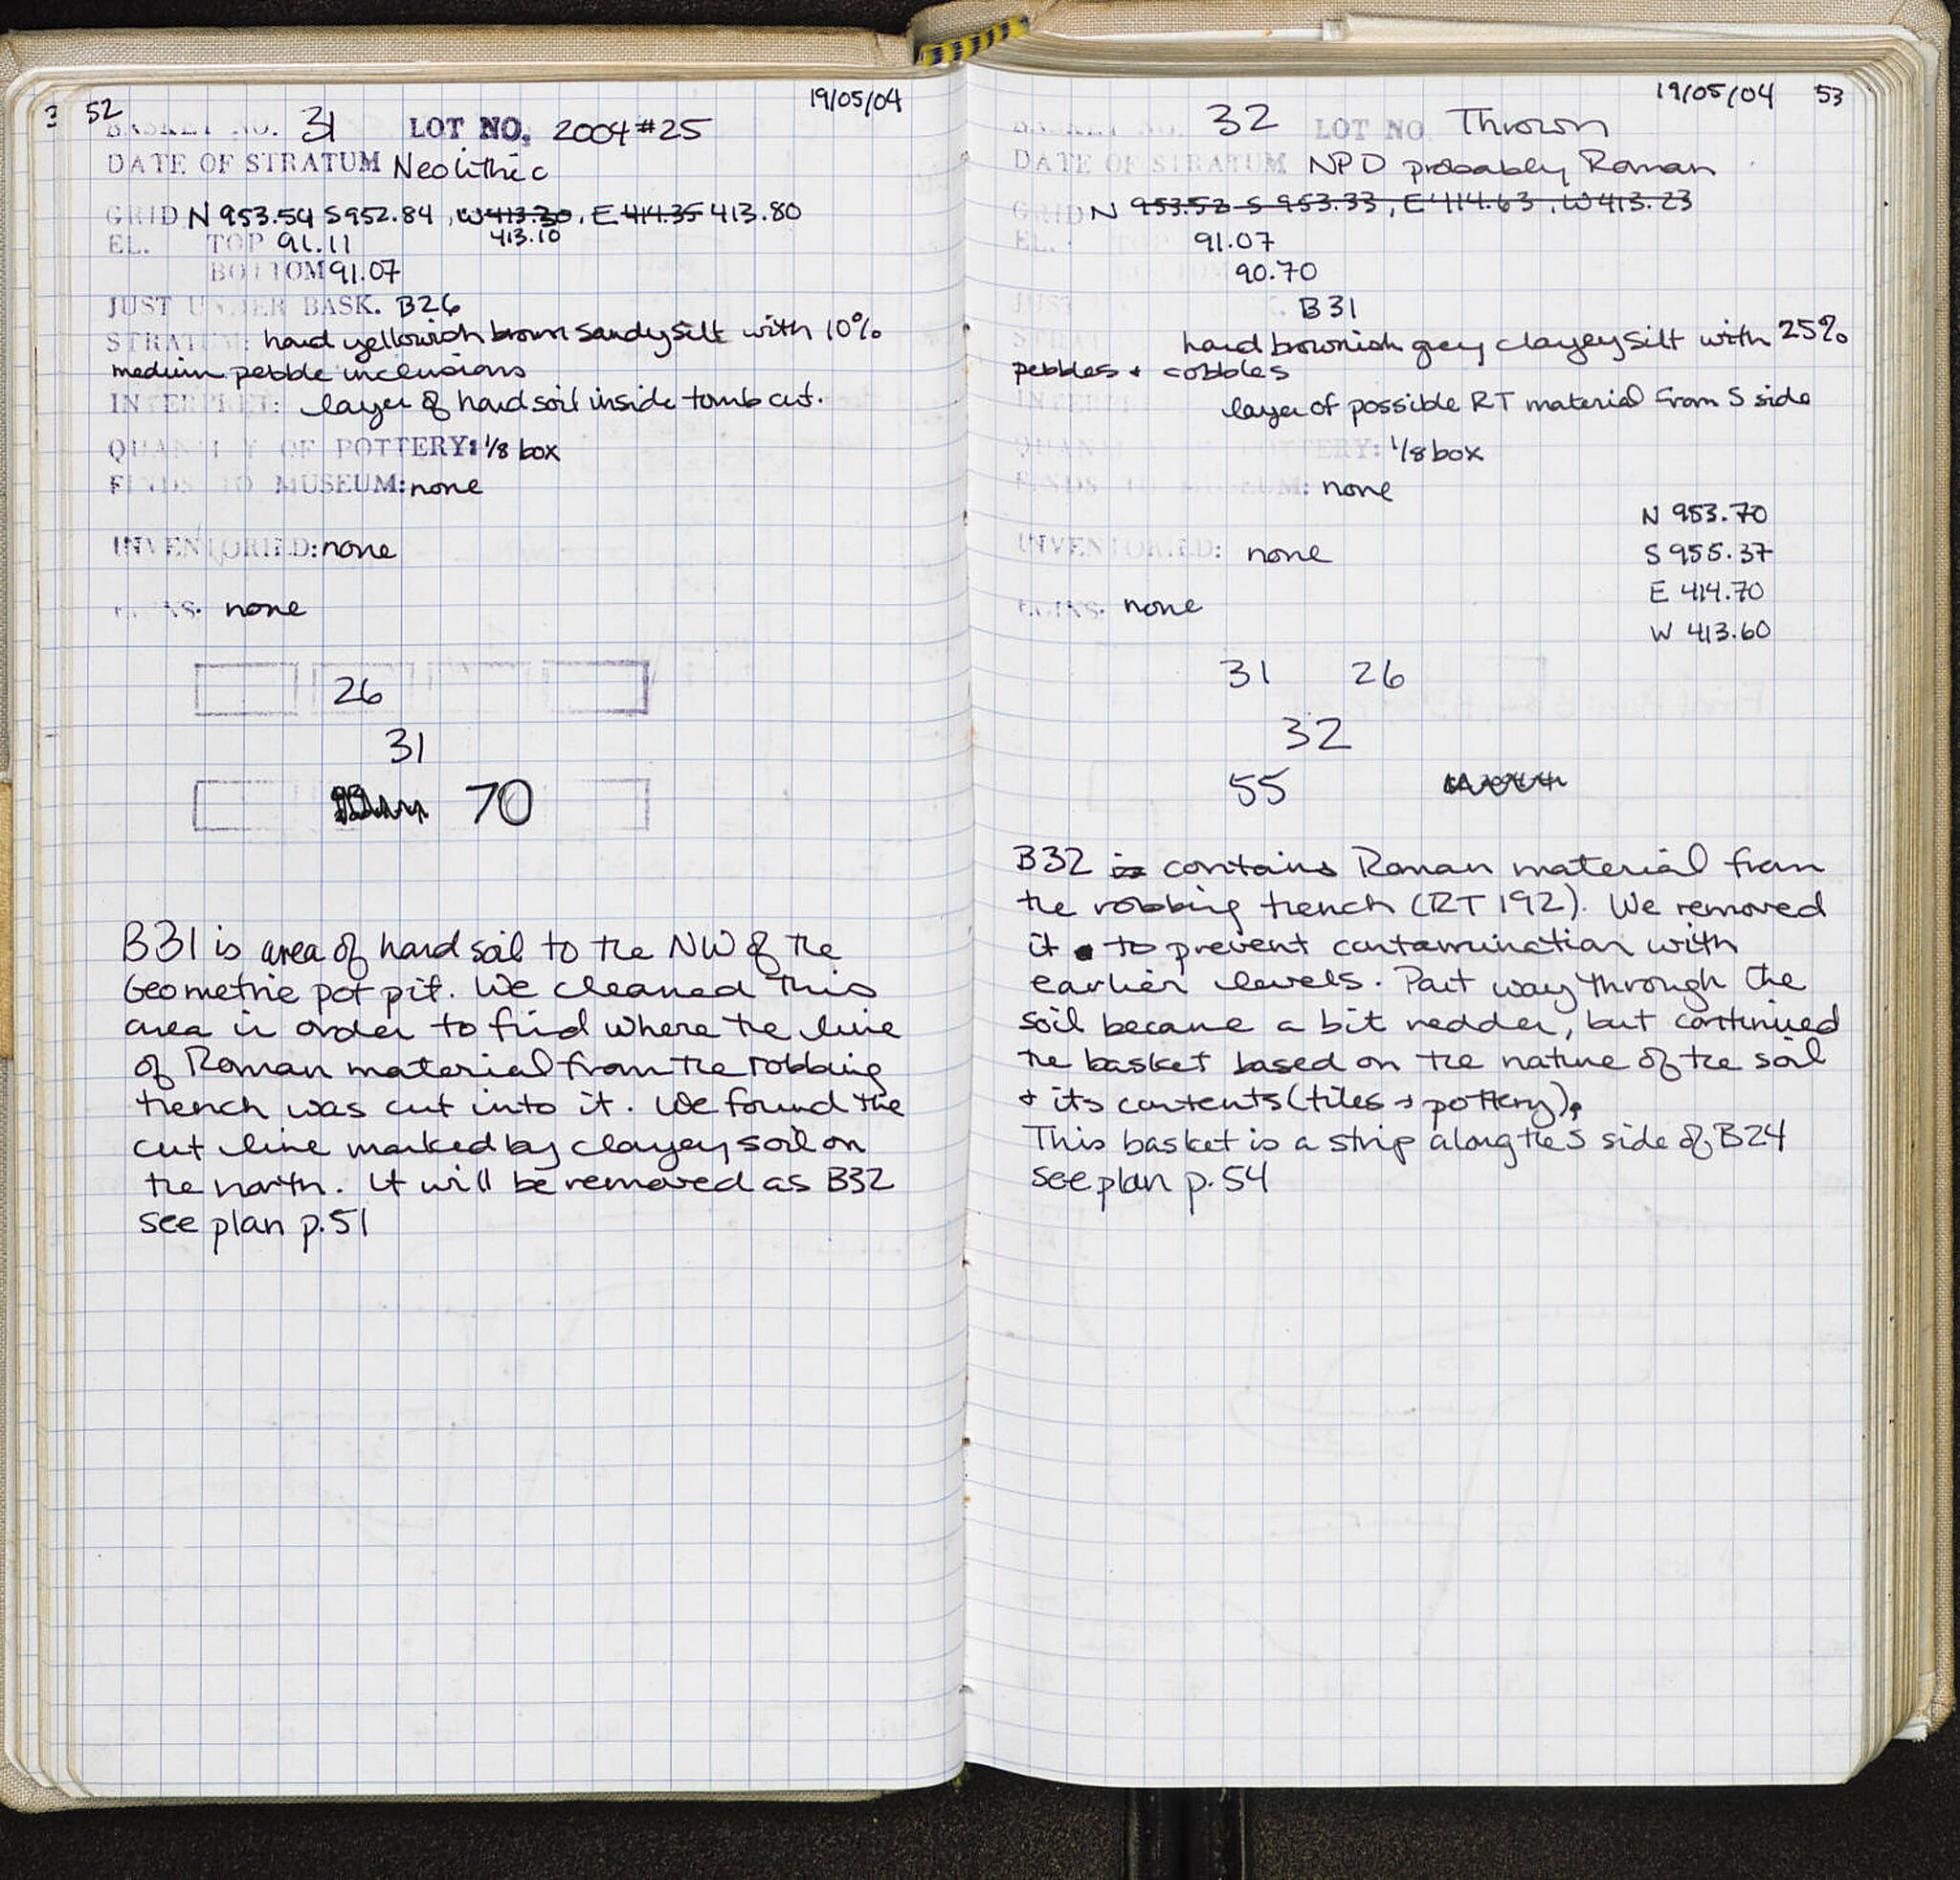 3 52 19/05/04
BASKET NO. 31 LOT NO. 2004#25
DATE OF STRATUM Neolithic
GRID N 953.54 S952.84, W413.30, E 414.35 413.80
413.10
EL. TOP 91.11
BOTTOM 91.07
JUST UNDER BASK. B26
STRATUM: hard yellowish brown sandy silt with 10%
medium pebble inclusions
INTERPRET: layer of hard soil inside tomb cut.
QUANTITY OF POTTERY: 1/8 box
FINDS TO MUSEUM: none
INVENTORIED: none
COINS. none
26
31
70
B31 is area of hard soil to the NW of the
Geometric pot pit. We cleaned this
area in order to find where the line
of Roman material from the robbing
trench was cut into it. We found the
cut line marked by clayey soil on
the north. It will be removed as B32
see plan p.51
19/05/04 53
BASKET NO. 32 LOT NO. Thrown
DATE OF STRATUM NPD probably Roman
GRID N 953.53 S 953.33, E 414.63, W413.23
EL. TOP 91.07
BOTTOM 90.70
JUST UNDER BASK. B31
STRATUM: hard brownish grey clayey silt with 25%
pebbles + cobbles
INTERPRET: layer of possible RT material from S side
QUANTITY OF POTTERY: 1/8 box
FINDS TO MUSEUM: none
N 953.70
INVENTORIED: none S 955.37
E 414.70
COINS. none
W 413.60
31 26
32
55
B32 is contains Roman material from
the robbing trench (RT 192). We removed
it to prevent contamination with
earlier levels. Part way through the
soil became a bit redder, but continued
the basket based on the nature of the soil
+ its contents (tiles + pottery).
This basket is a strip along the S side of B24
see plan p.54